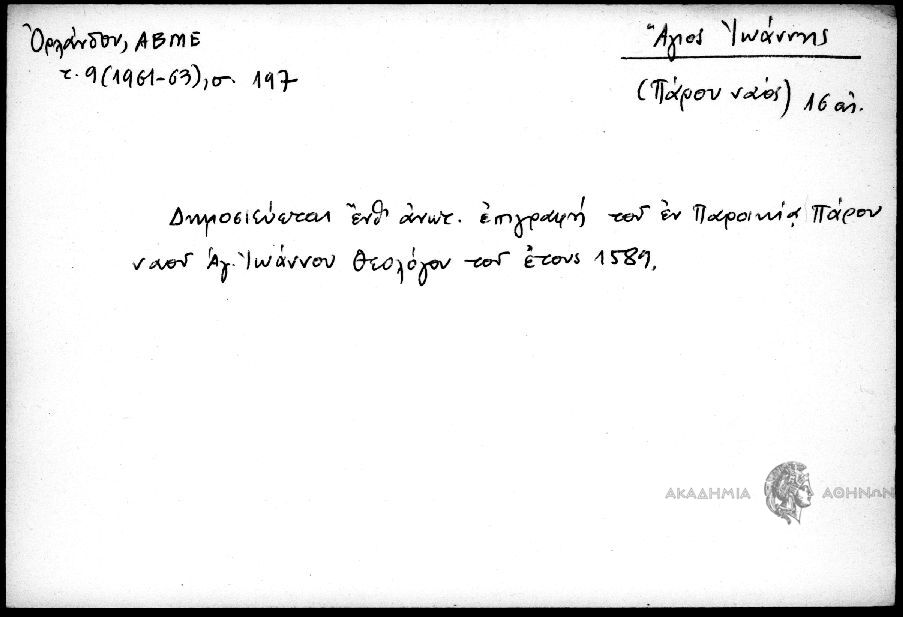 Ὀρλάνδου, ΑΒΜΕ
τ. 9 (1961-63), σ. 197
Ἅγιος Ἰωάννης
(Πάρου ναός) 16 αἰ.
Δημοσιεύεται ἔνθ' ἀνωτ. ἐπιγραφή τοῦ ἐν Παροικίᾳ Πάρου
ναοῦ Ἁγ. Ἰωάννου Θεολόγου τοῦ ἔτους 1589.
ΑΚΑΔΗΜΙΑ ΑΘΗΝΩΝ